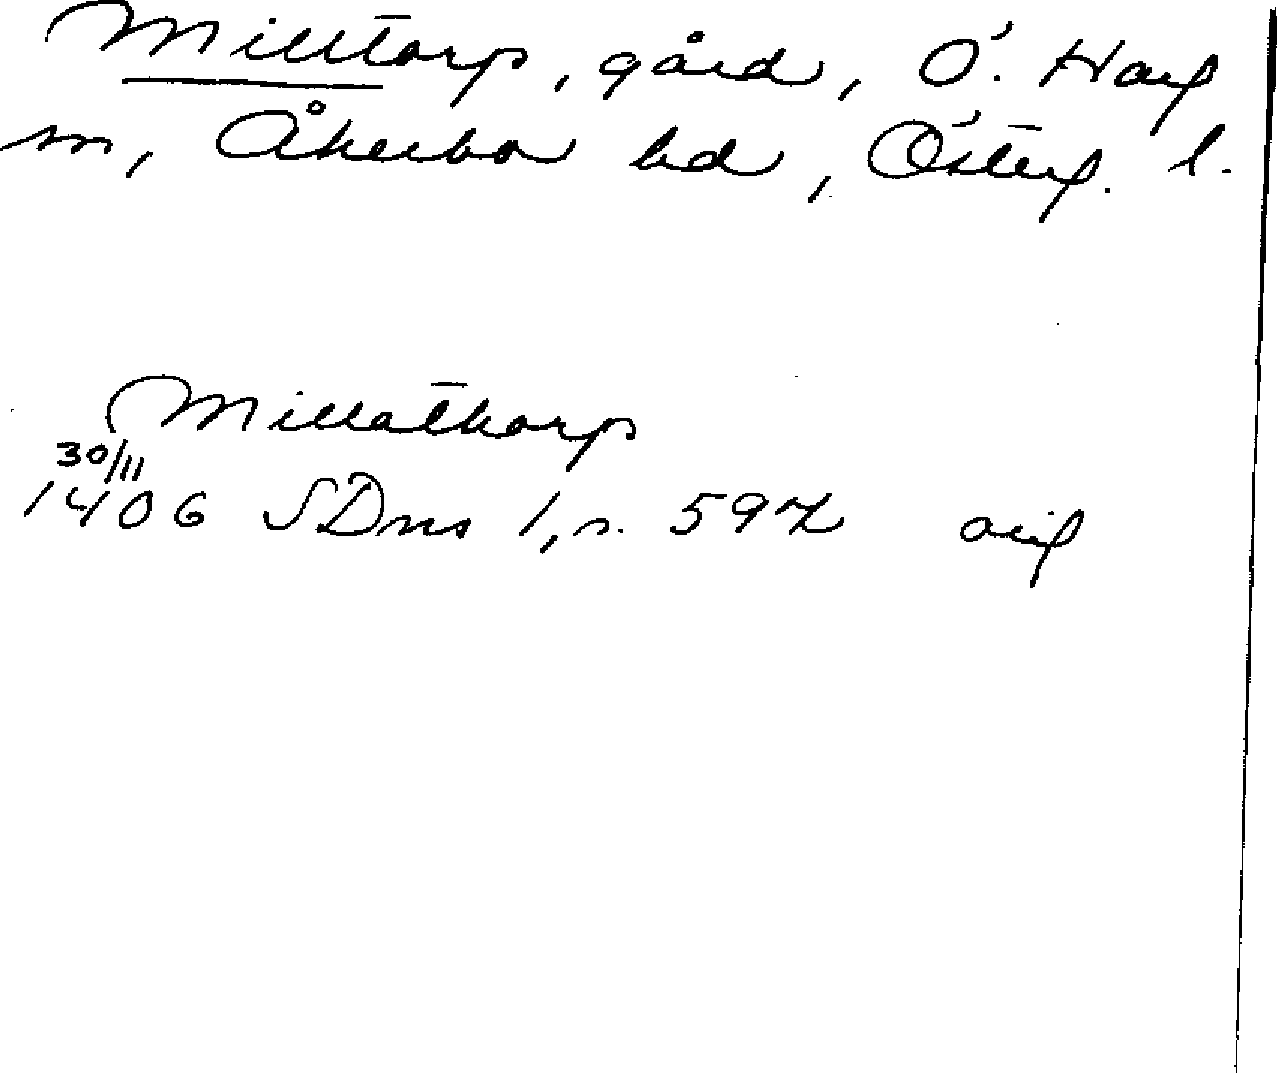 Milltorp, gård, Ö. Harg
sn, Åkerbo hd, Österg. l.
Millathorp
30/11
1406 SDns 1, s. 592 orig